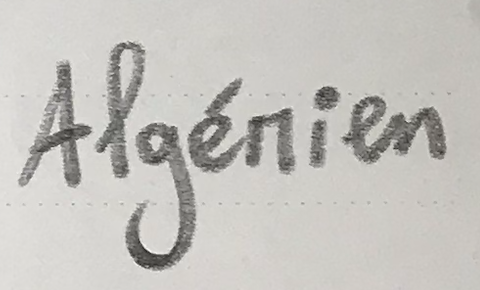 Algérien